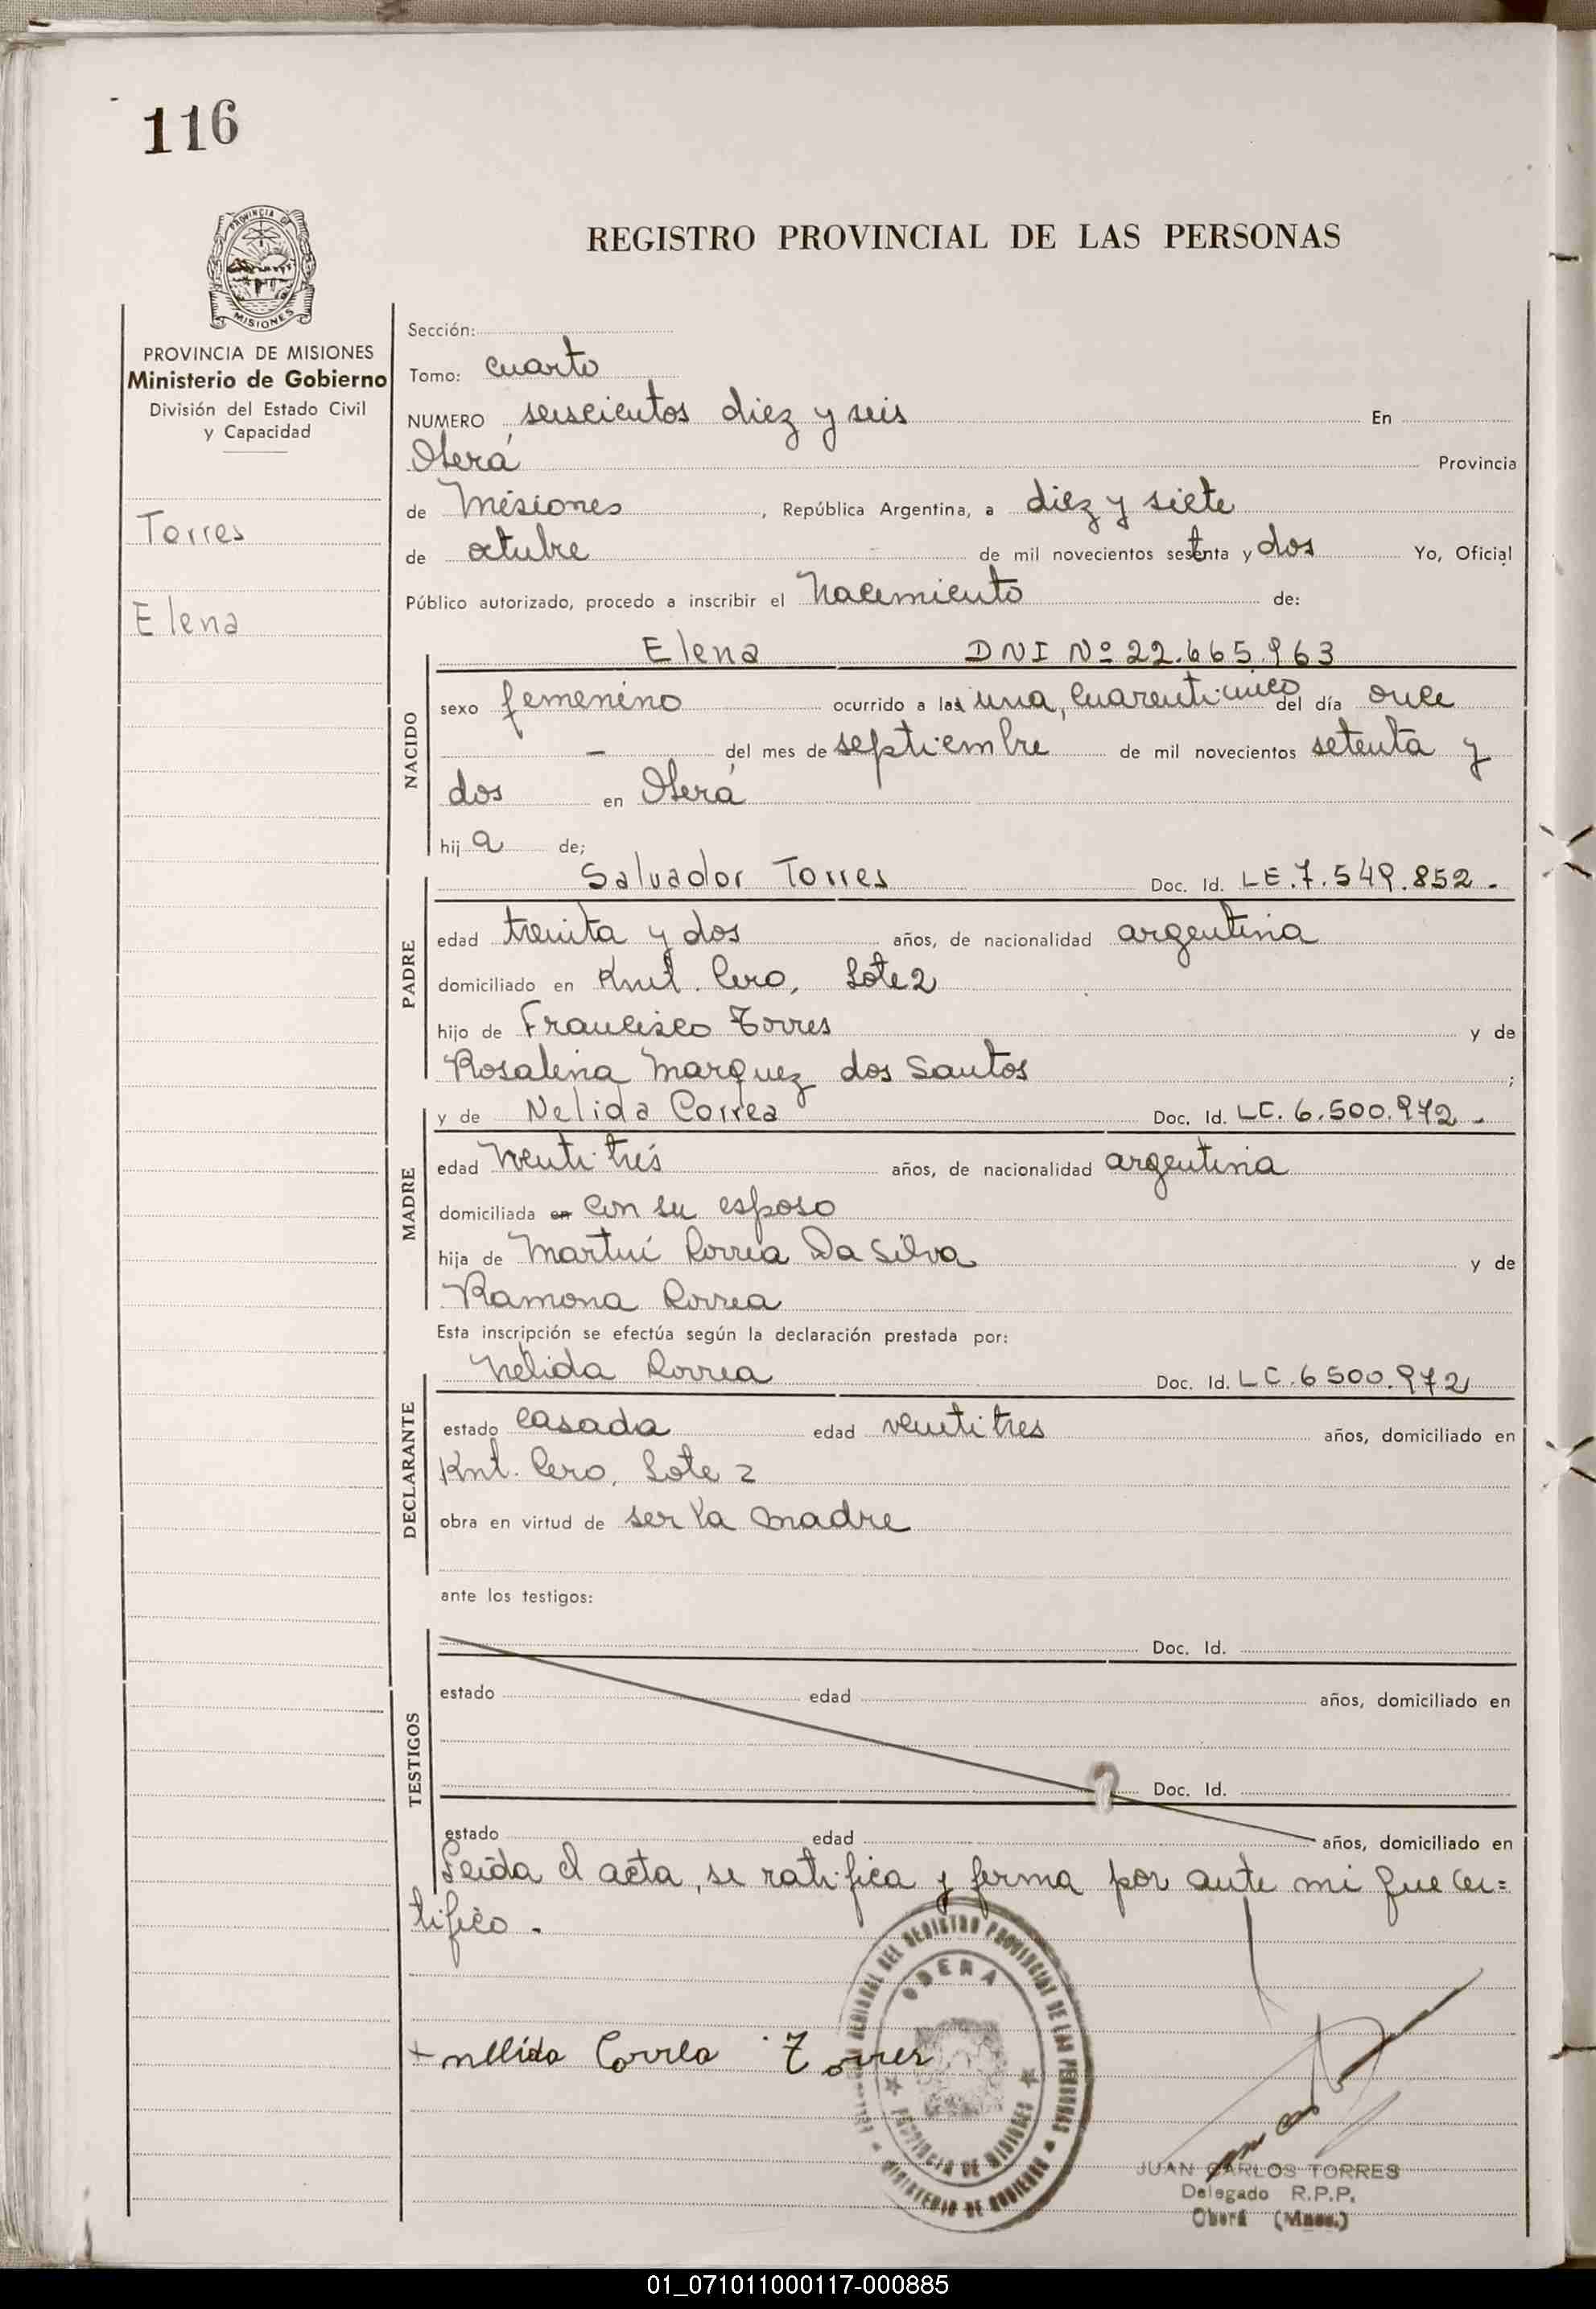 116
PROVINCIA DE
MISIONES
REGISTRO PROVINCIAL DE LAS PERSONAS
PROVINCIA DE MISIONES
Ministerio de Gobierno
División del Estado Civil
y Capacidad
Torres
Elena
Sección:
Tomo: cuarto
NUMERO seiscientos diez y seis En
Oberá Provincia
de Misiones, República Argentina, a diez y siete
de octubre de mil novecientos setenta y dos Yo, Oficial
Público autorizado, procedo a inscribir el Nacimiento de:
NACIDO
Elena DNI Nº 22.665.963
sexo femenino ocurrido a las una, cuarenticinco del día once
- del mes de septiembre de mil novecientos setenta y
dos en Oberá
hij a de;
PADRE
Salvador Torres Doc. Id. LE.7.549.852.-
edad treinta y dos años, de nacionalidad argentina
domiciliado en Kmt. Cero, Lote 2
hijo de Francisco Torres y de
Rosalina Marquez dos Santos ;
MADRE
y de Nelida Correa Doc. Id. LC. 6.500.972 -
edad venti trés años, de nacionalidad argentina
domiciliada en con su esposo
hija de Martín Correa Da Silva y de
Ramona Correa
Esta inscripción se efectúa según la declaración prestada por:
DECLARANTE
Nélida Correa Doc. Id. LC.6 500.972
estado casada edad ventitres años, domiciliado en
Kmt. Cero, Lote 2
obra en virtud de ser la madre
ante los testigos:
TESTIGOS
Doc. Id.
estado edad años, domiciliado en
Doc. Id.
estado edad años, domiciliado en
Leída el acta, se ratifica y firma por ante mi que cer=
tifico.
REGIONAL DEL REGISTRO PROVINCIAL DE LAS PERSONAS
OBERA
PROVINCIA DE MISIONES
MINISTERIO DE GOBIERNO
+ nelida Correa Torres
JUAN CARLOS TORRES
Delegado R.P.P.
Oberá (Mnes.)
01_071011000117-000885